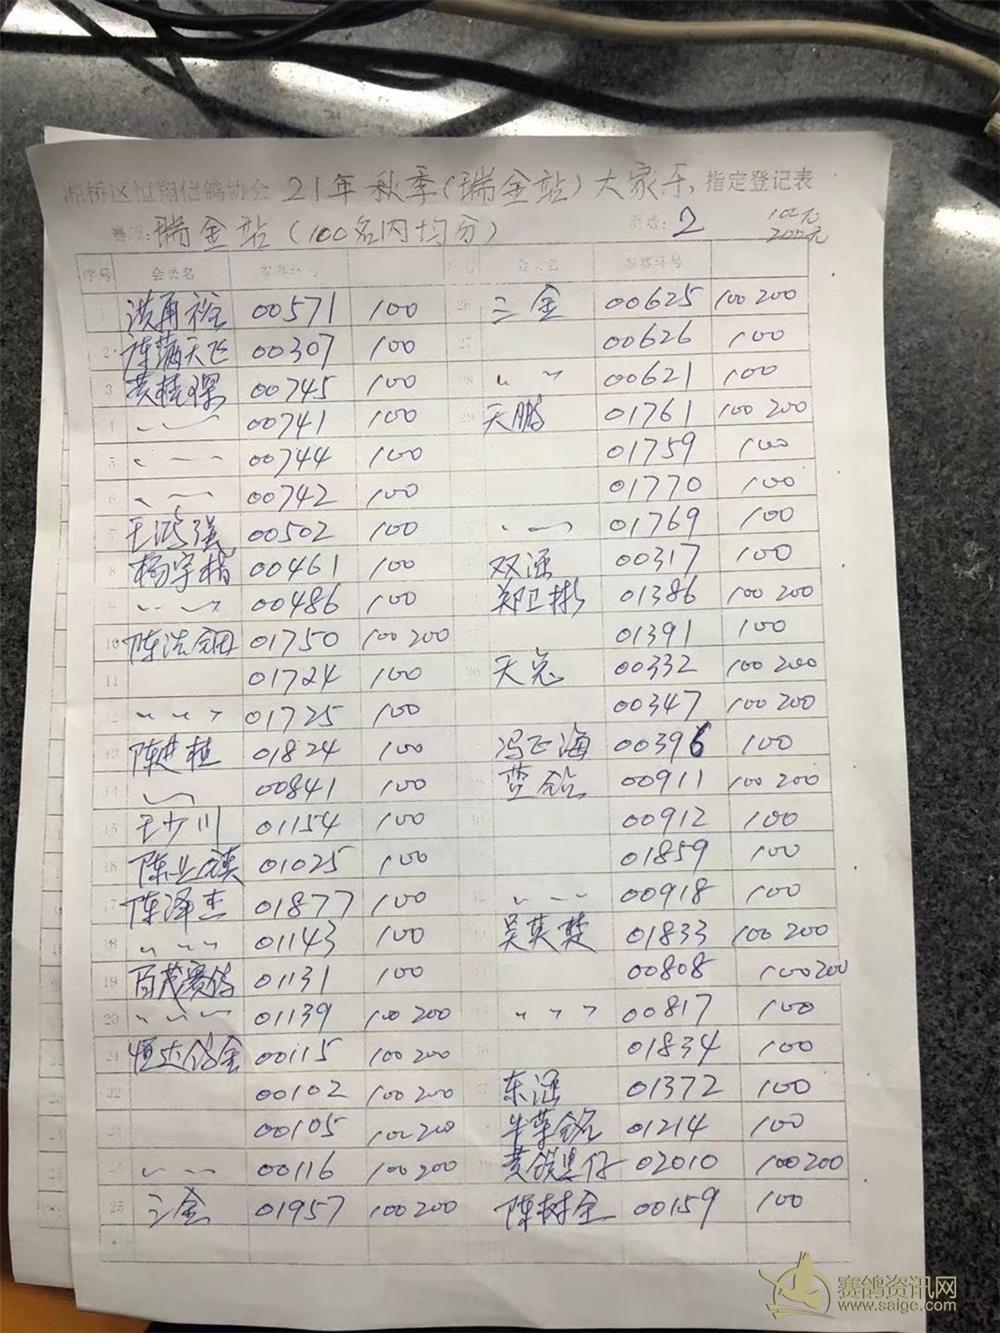 湘桥区恒翔信鸽协会 21年秋季(瑞金站)大家乐,指定登记表
赛段:瑞金站(100名内均分) 页数:2 100元 200元
序号 会员名 参赛环号 会员名 参赛环号
1 洪再裕 00571 100 26 三金 00625 100 200
2 陈满天飞 00307 100 27 00626 100
3 黄桂 00745 100 28 〃 〃 00621 100
4 00741 100 29 天鹏 01761 100 200
5 00744 100 01759 100
6 00742 100 01770 100
7 王鸿强 00502 100 01769 100
8 杨宇楷 00461 100 双涵 00317 100
9 00486 100 郑卫彬 01386 100 200
10 陈浩钿 01750 100 200 01391 100
11 01724 100 天宠 00332 100 200
12 〃 〃 〃 01725 100 00347 100 200
13 陈进桂 01824 100 冯正海 00396 100
14 00841 100 蓝鸽 00911 100 200
15 王少川 01154 100 00912 100
16 陈业 01025 100 01859 100
17 陈泽杰 01877 100 00918 100
18 01143 100 吴英楚 01833 100 200
19 百茂赛鸽 01131 100 00808 100 200
20 〃 〃 〃 01139 100 200 〃 〃 〃 00817 100
21 恒达合金 00115 100 200 01834 100
22 00102 100 200 东涵 01372 100
00105 100 200 牛草鸽 01214 100
00116 100 200 黄铁黑仔 02010 100 200
25 三金 01957 100 200 陈树全 00159 100
赛鸽资讯网
www.saige.com